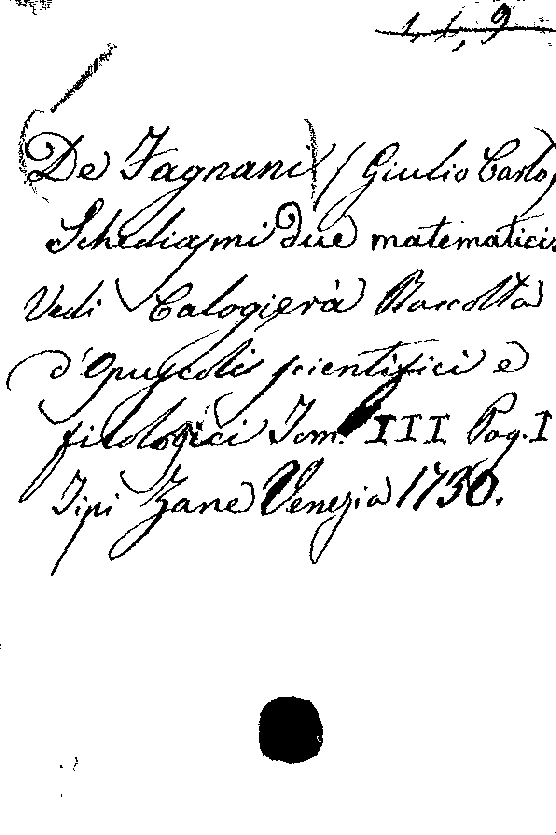 1, 1, 9
De Fagnani (Giulio Carlo)
Schediasmi due matematici.
Vedi Calogierà Raccolta
d'Opuscoli scientifici e
filologici Tom. III Pag. I
Tipi Zane Venezia 1730.